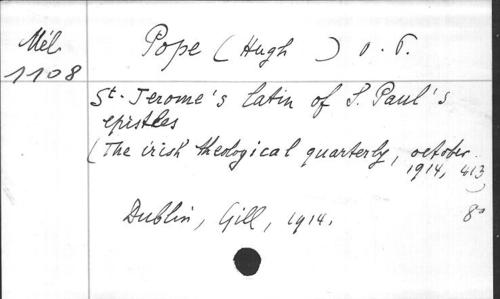 Mél. Pope (Hugh ) O. P.
1108
St. Jerome's latin of S. Paul's
epistles
(The irish theological quarterly, october
1914, 413)
Dublin, Gill, 1914. 8°